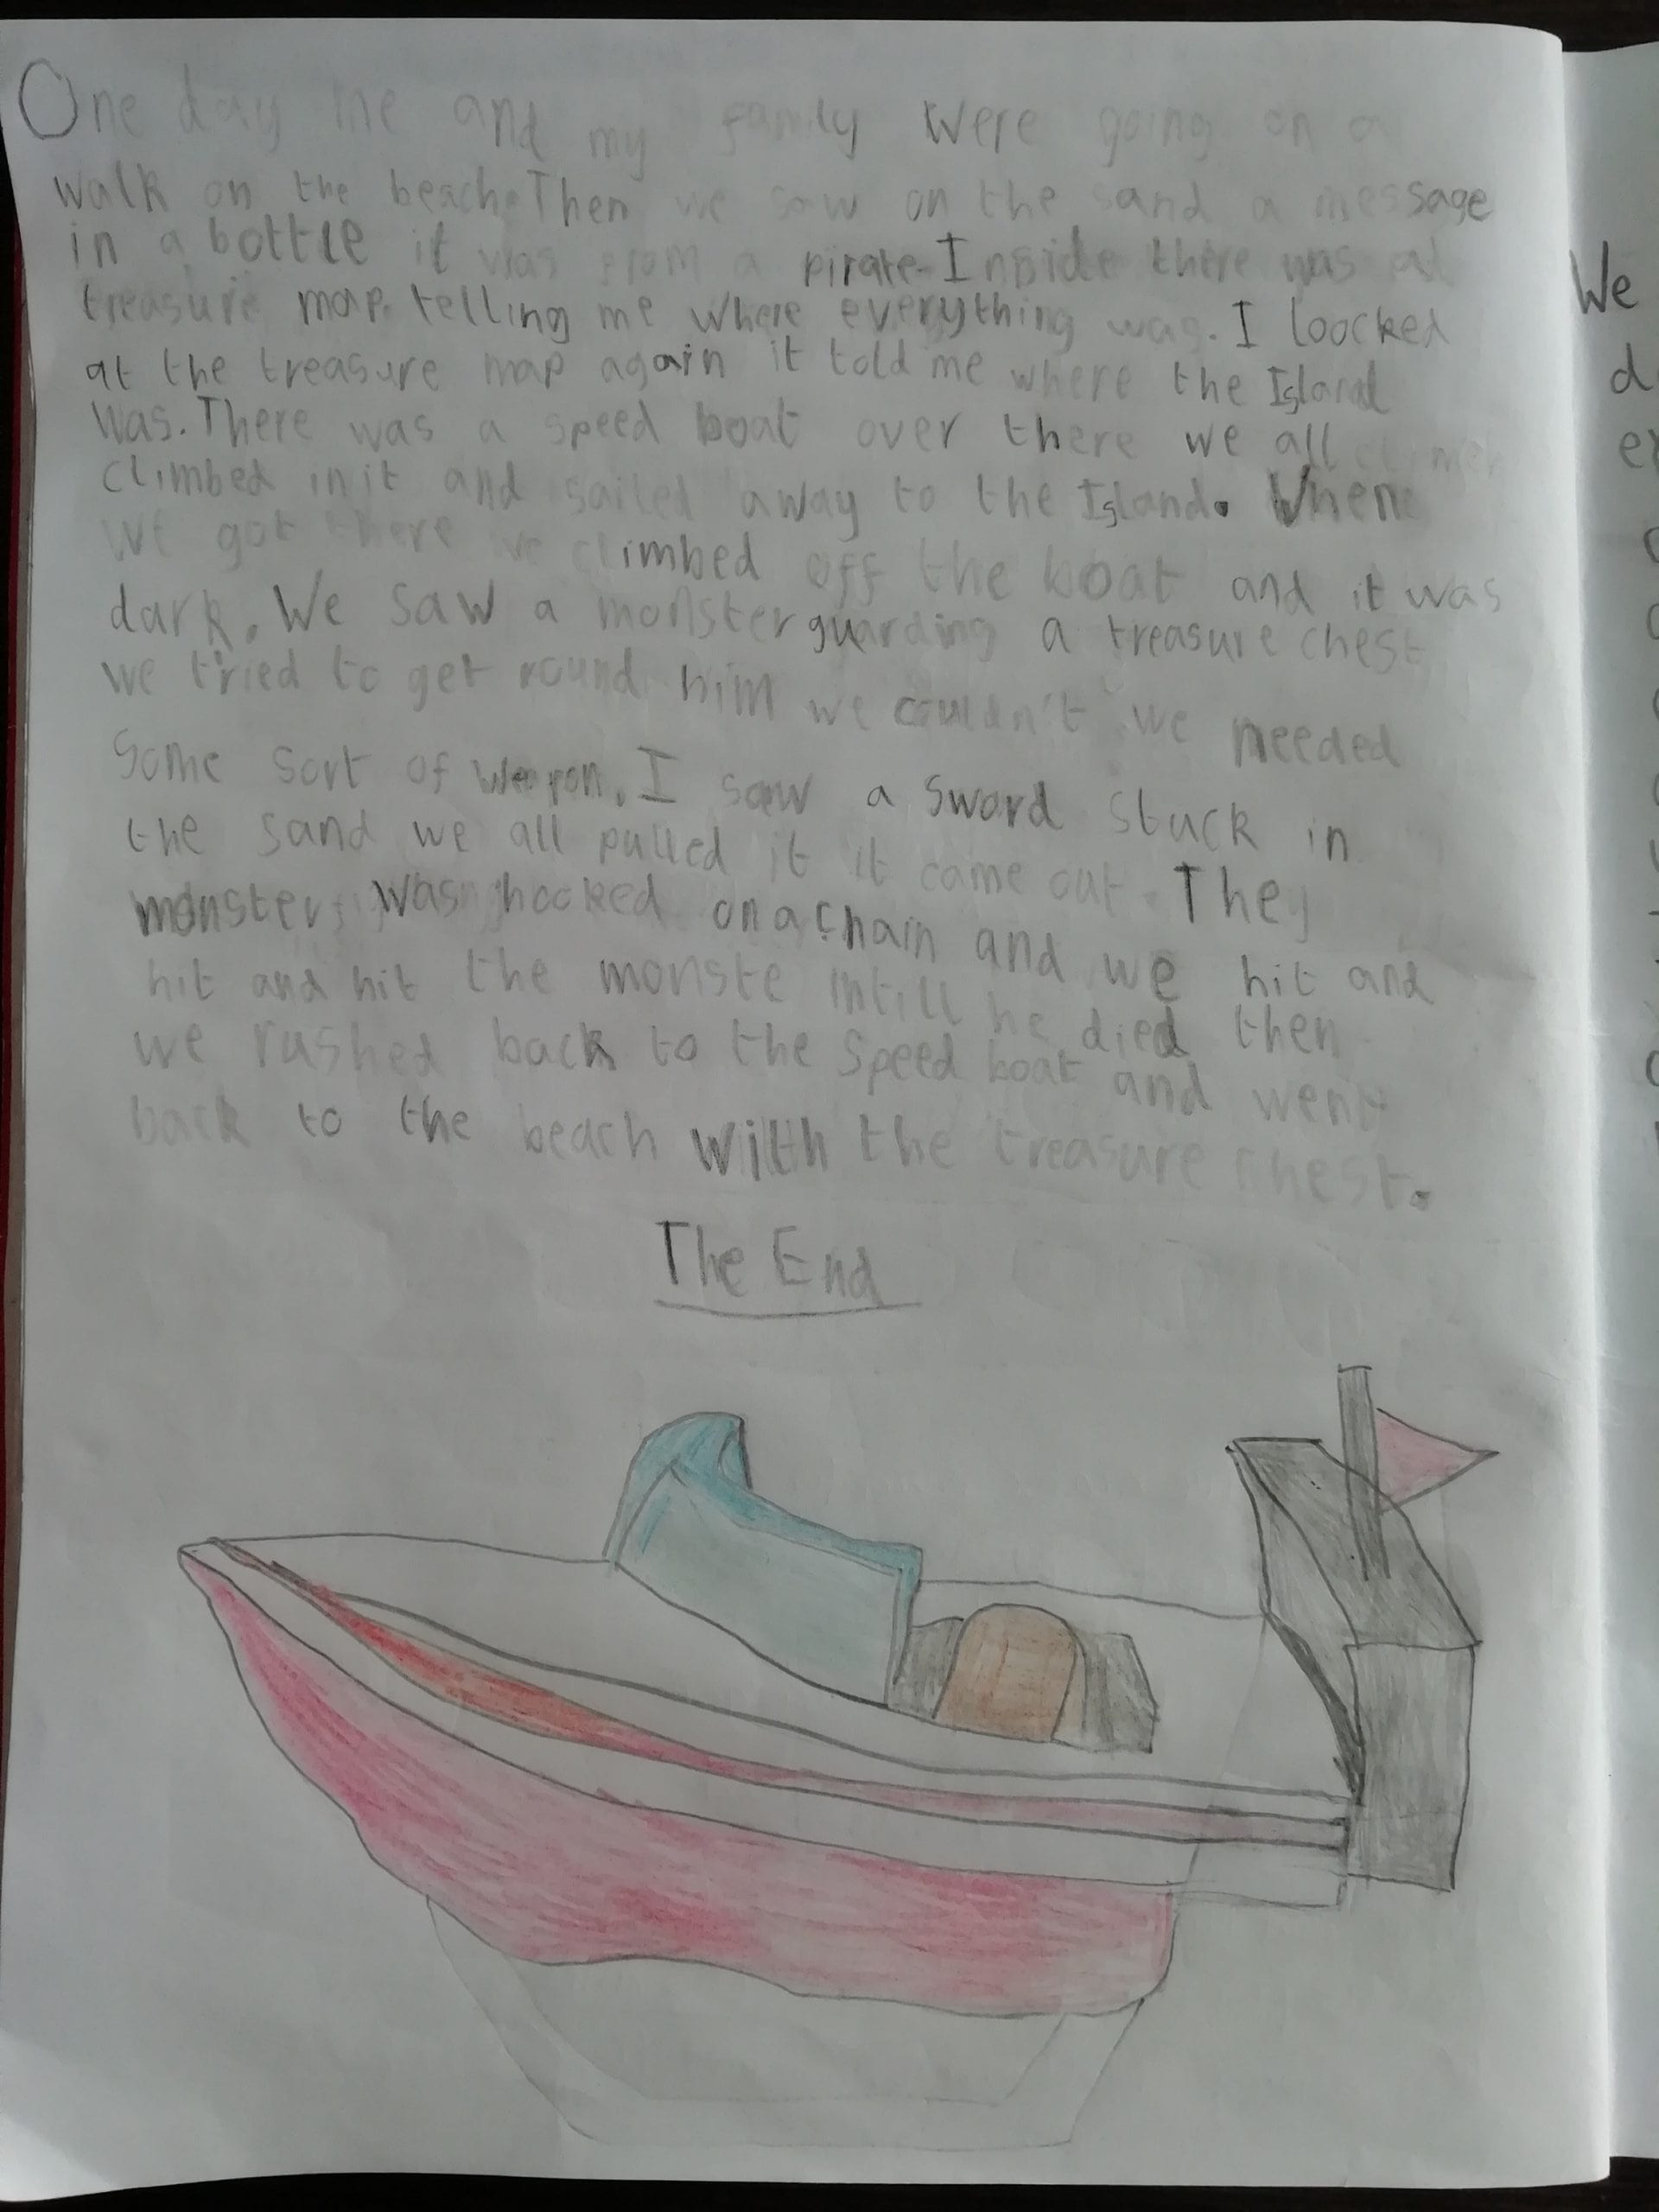 One day me and my family were going on a
walk on the beach. Then we saw on the sand a message
in a bottle it was from a pirate. Inside there was a
treasure map. telling me where everything was. I loocked
at the treasure map again it told me where the Island
was. There was a speed boat over there we all
climbed in it and sailed away to the Island. When
we got there we climbed off the boat and it was
dark. We saw a monster guarding a treasure chest
we tried to get round him we couldn't we needed
some sort of weapon. I saw a sword stuck in
the sand we all pulled it it came out. They
monster was hooked on a chain and we hit and
hit and hit the monste intill he died then
we rushed back to the speed boat and went
back to the beach with the treasure chest.
The End
We